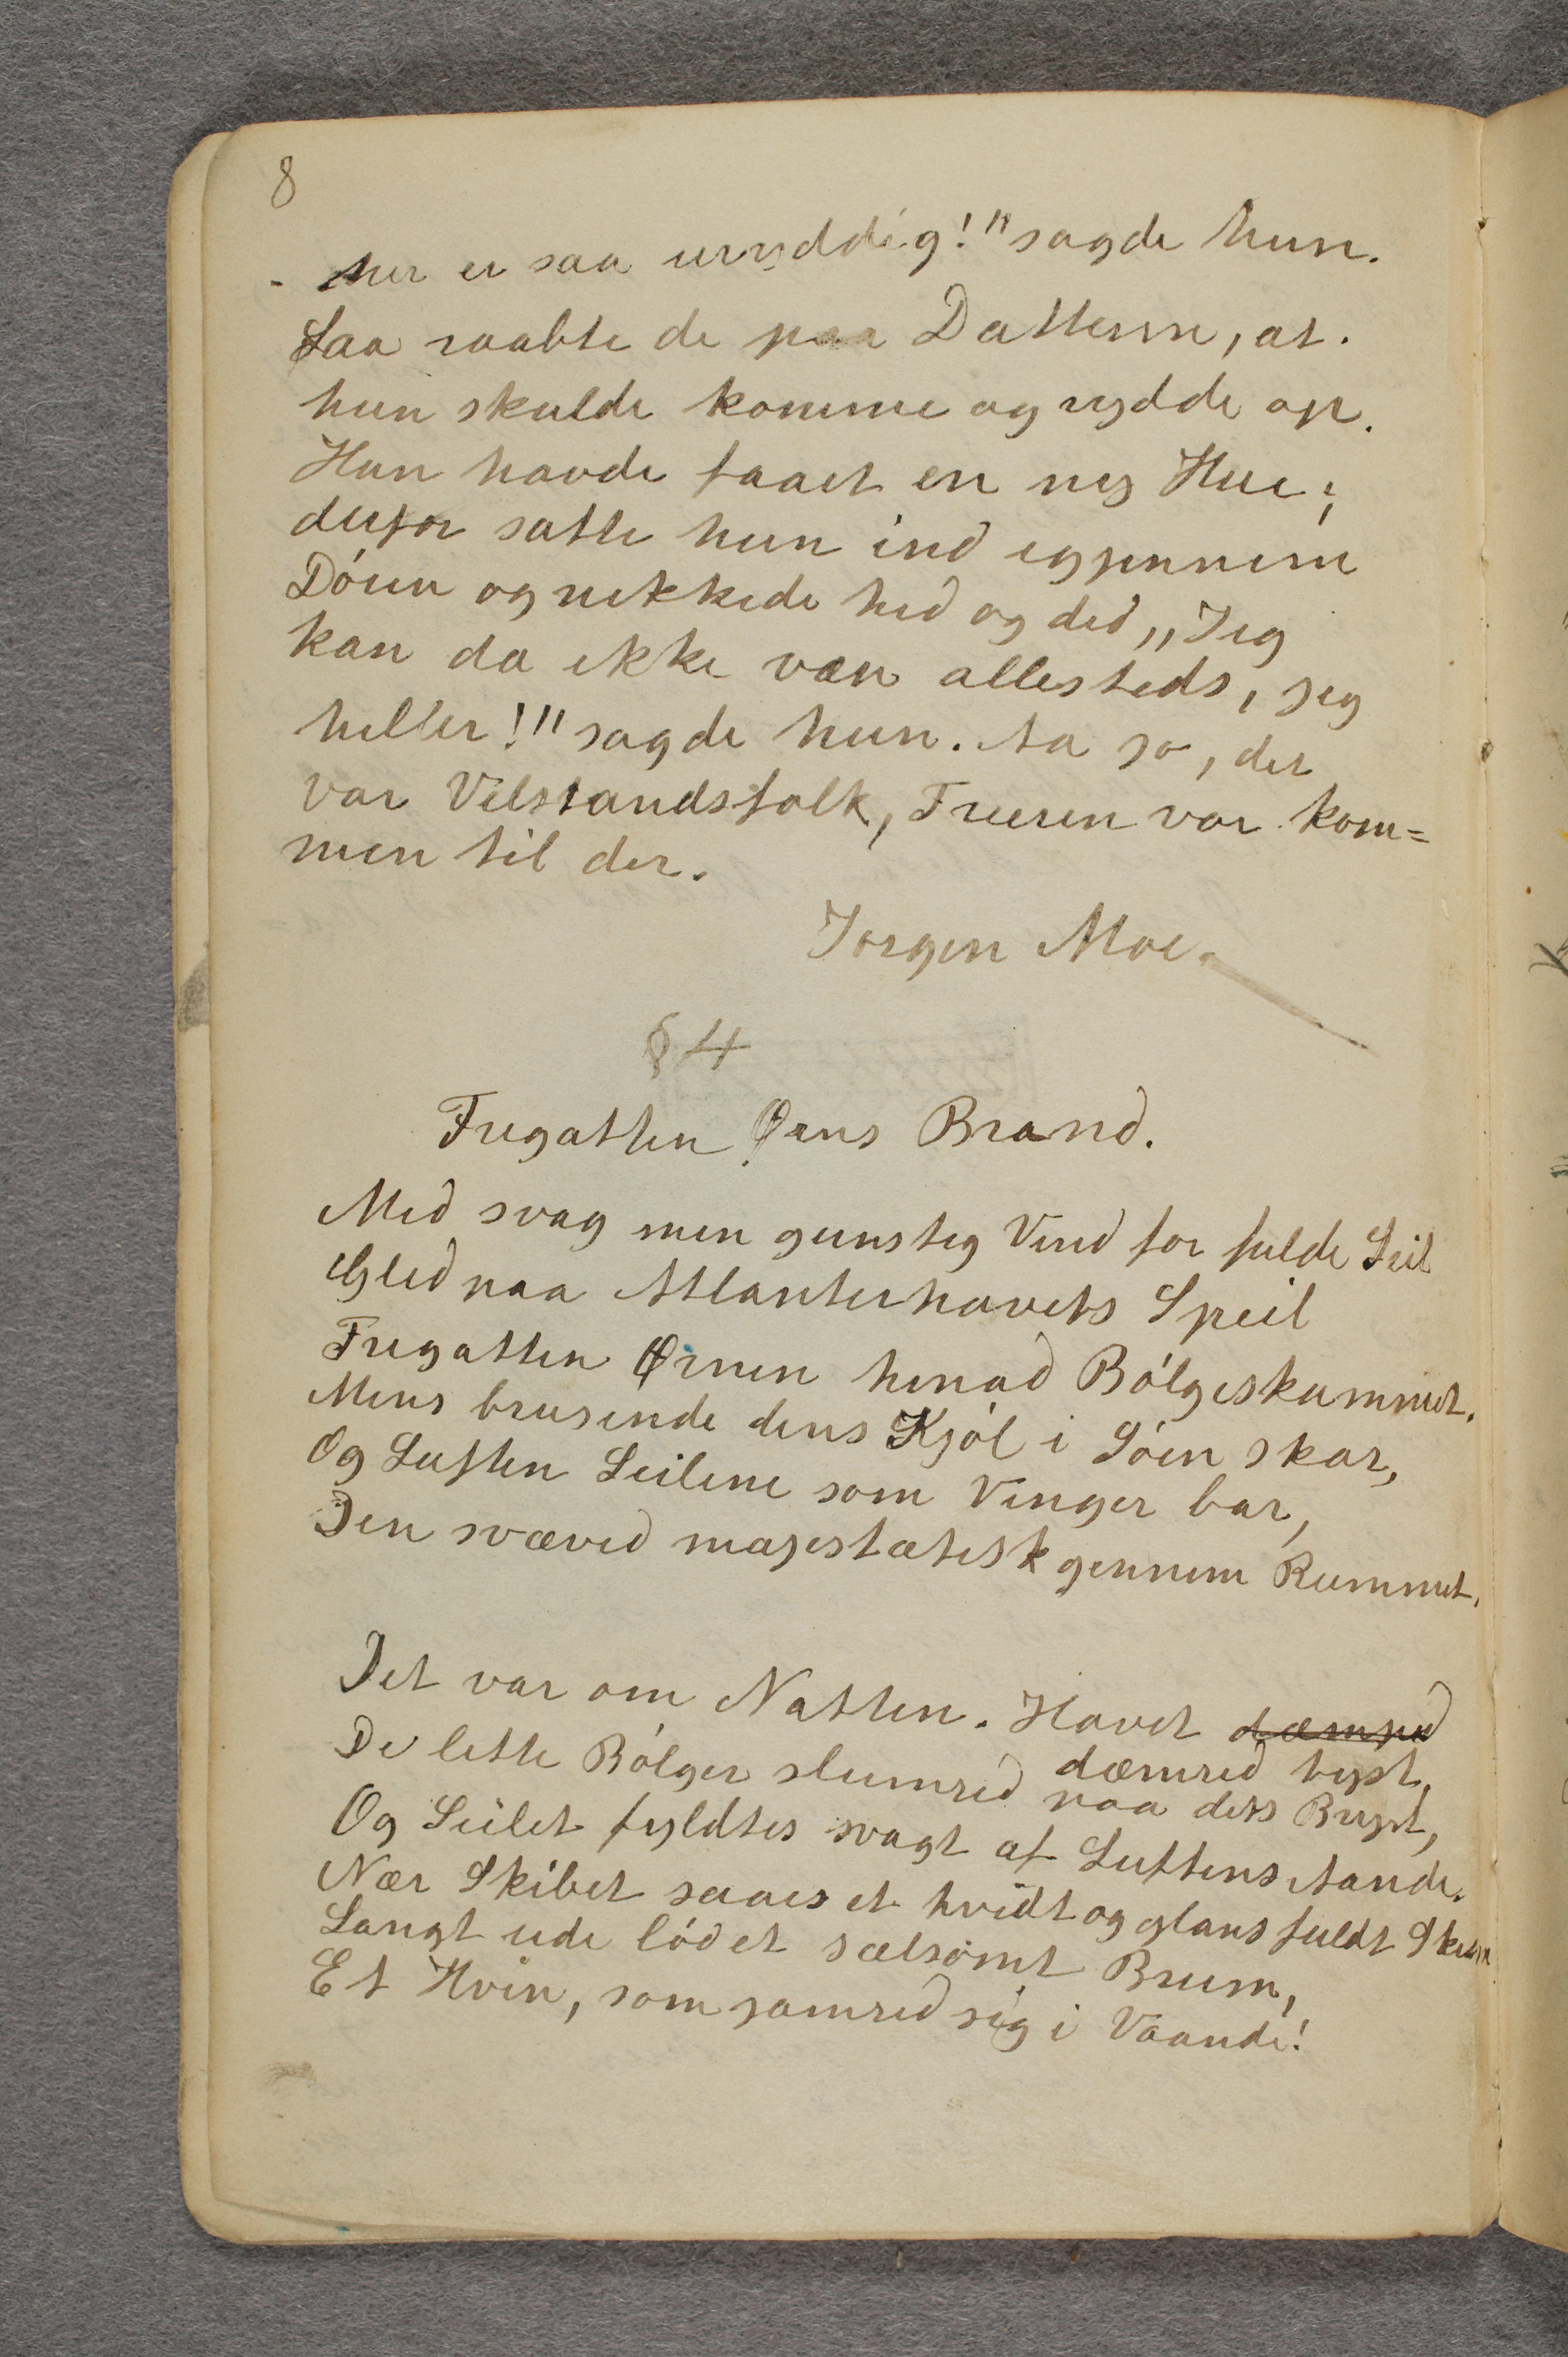 8
- her er saa uryddig!" sagde hun.
Saa raabte de paa Datteren, at.
hun skulde komme og rydde op.
Hun havde faaet en ny Hue;
derfor satte hun ind igjennem
Dóren og nikkede hid og did „Jeg
kan da ikke være allesteds, jeg
heller!" sagde hun. Aa jo, det
var Velstandsfolk, Frieren var kom=
men til der.
Jorgen Moe.
§ 4
Fregatten Ørns Brand.
Med svag men gunstig Vind for fulde Seil
Gled paa Atlanterhavets Speil
Fregatten Ørnen henad Bólgeskummet.
Mens brusende dens Kjól i Sóen skar,
Og Luften Seilene som Vinger bar,
Den svæved majestætisk gennem Rummet.
Det var om Natten. Havet dæmped
dæmred tyst,
De lette Bólger slumred paa dets Bryst,
Og Seilet fyldtes svagt af Luftens Aande.
Nær Skibet saaes et hvidt og glansfuldt Skum
Langt ude lód et sælsomt Brum,
Et Hvin, som jamred sig i Vaande!